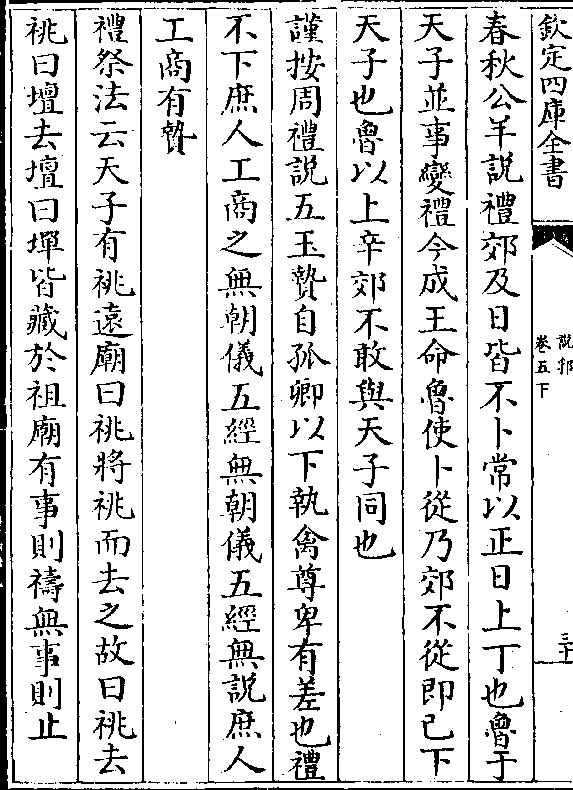 欽定四庫全書
說郛
卷五下
三十
春秋公羊說禮郊及日皆不卜常以正日上丁也魯于
天子並事變禮今成王命魯使卜從乃郊不從即已下
天子也魯以上辛郊不敢與天子同也
謹按周禮說五玉贄自孤卿以下執禽尊卑有差也禮
不下庶人工商之無朝儀五經無朝儀五經無說庶人
工商有贄
禮祭法云天子有祧遠廟曰祧將祧而去之故曰祧去
祧曰壇去壇曰墠皆藏於祖廟有事則禱無事則止